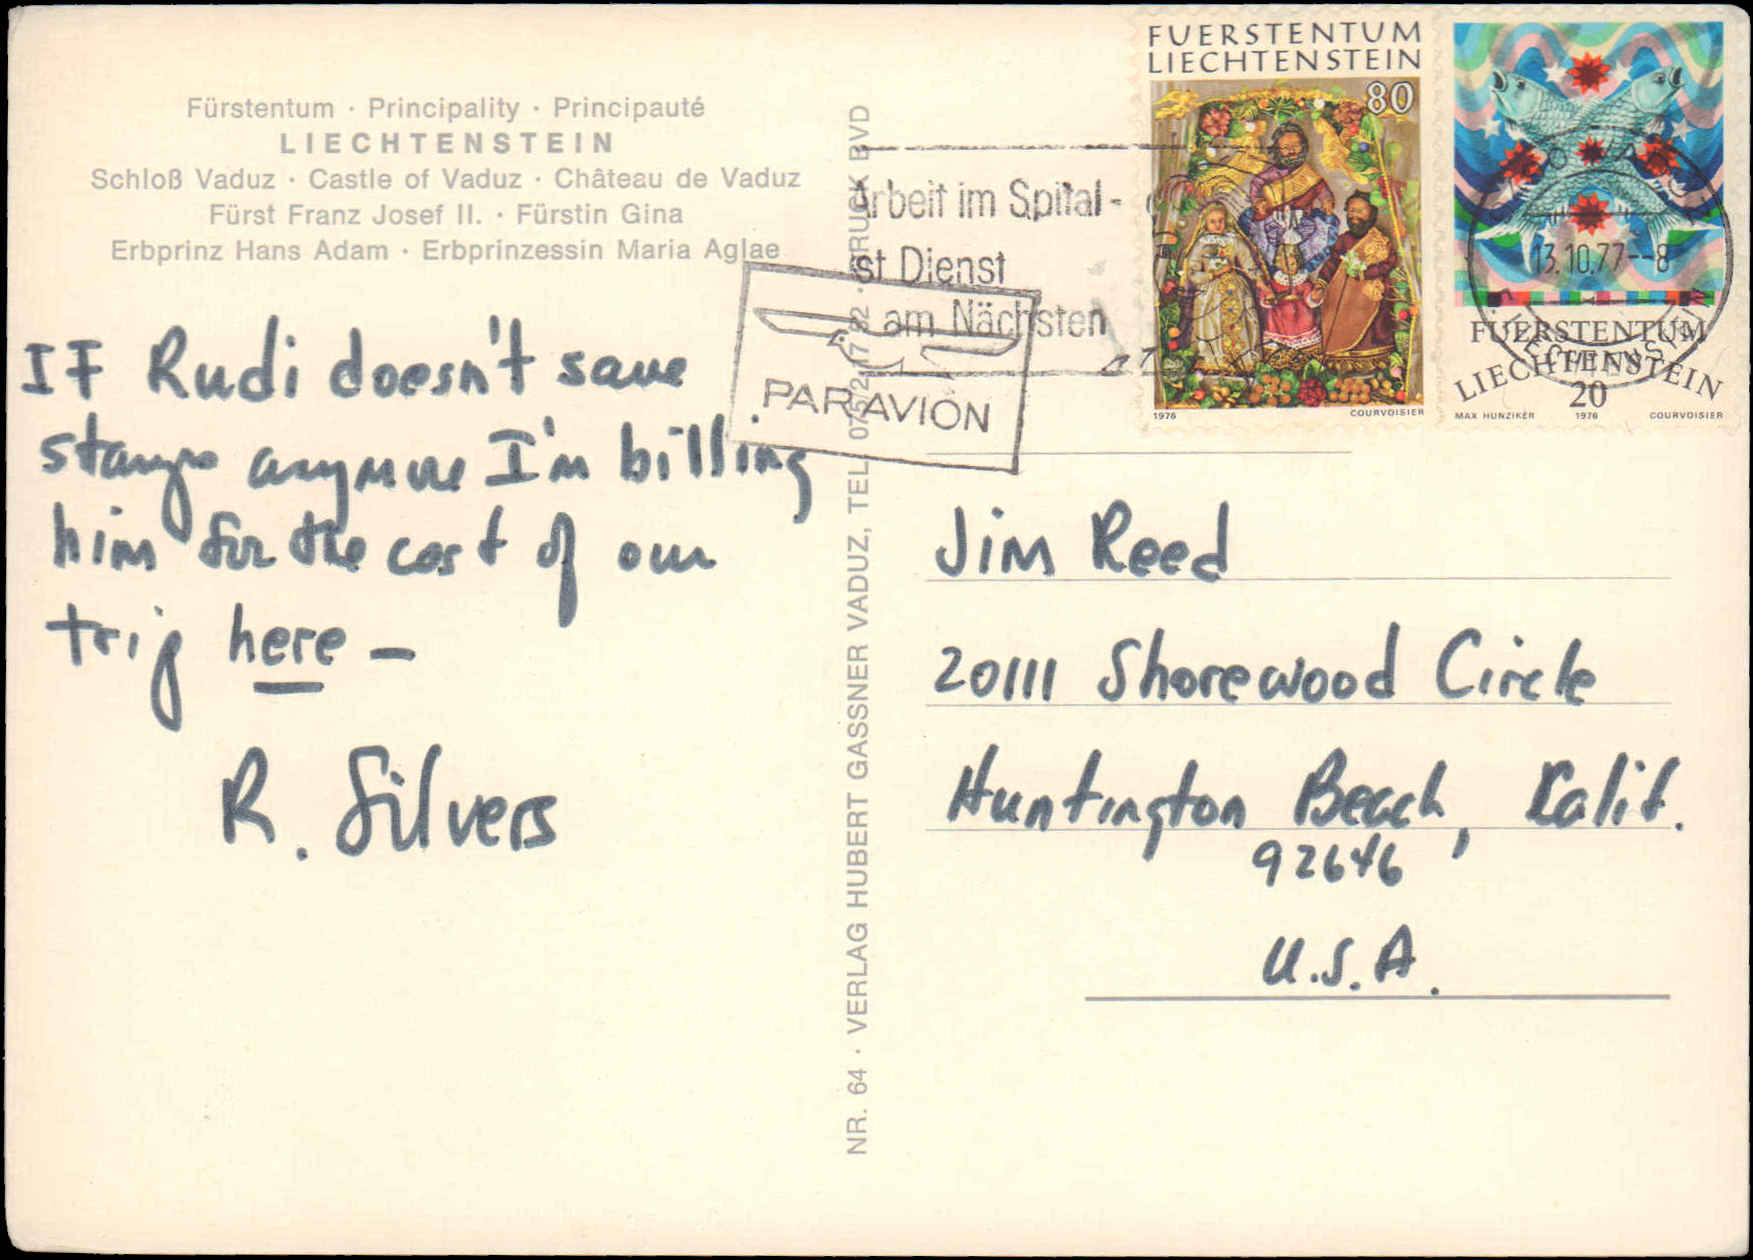 Fürstentum · Principality · Principauté
LIECHTENSTEIN
Schloß Vaduz · Castle of Vaduz · Château de Vaduz
Fürst Franz Josef II. · Fürstin Gina
Erbprinz Hans Adam · Erbprinzessin Maria Aglae
If Rudi doesn't save
stamps anymore I'm billing
him for the cost of our
trip here —
R. Silvers
NR. 64 · VERLAG HUBERT GASSNER VADUZ, TEL.
BVD
Arbeit im Spital -
ist Dienst
am Nächsten
PAR AVION
FUERSTENTUM
LIECHTENSTEIN
80
1976 COURVOISIER
13.10.77--8
FUERSTENTUM
LIECHTENSTEIN
20
MAX HUNZIKER 1976 COURVOISIER
Jim Reed
20111 Shorewood Circle
Huntington Beach, Calif.
92646
U.S.A.